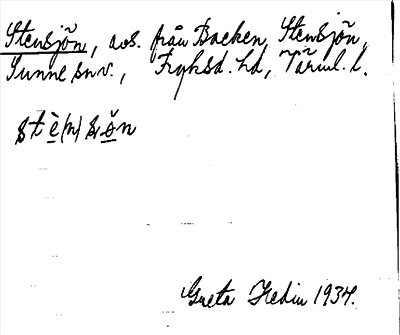 Stensjön, avs. från Backen, Stensjön,
Sunne sn v., Fryksd. hd, Värml. l.
stè(n)sö̀n
Greta Hedin 1934.